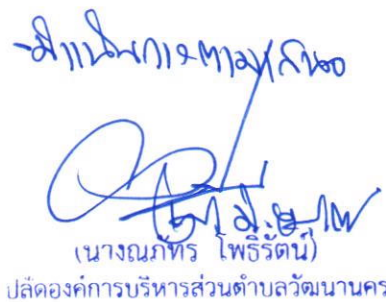 -ดำเนินการตามเสนอ
(นางณภัทร โพธิ์รัตน์)
ปลัดองค์การบริหารส่วนตำบลวัฒนานคร